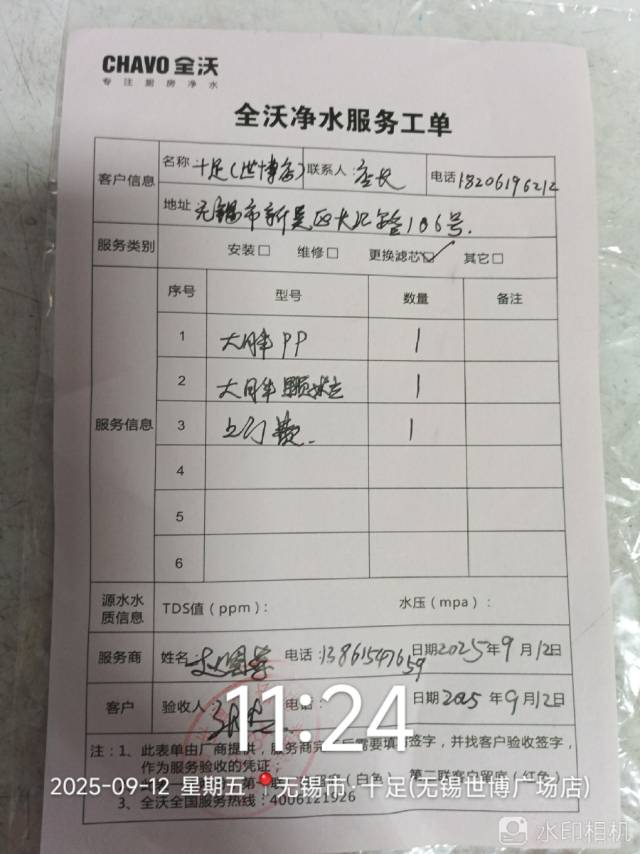 CHAVO 全沃
专 注 厨 房 净 水
全沃净水服务工单
客户信息 名称 十足(世博店) 联系人: 店长 电话 18206196212
地址 无锡市新吴区 106号.
服务类别 安装□ 维修□ 更换滤芯☑ 其它□
服务信息 序号 型号 数量 备注
1 大胖PP 1
2 大胖颗粒 1
3 上门 1
4
5
6
源水水质信息 TDS值（ppm）： 水压（mpa）：
服务商 姓名: 电话: 13861547659 日期2025年9月12日
客户 验收人: 电话: 日期2025年9月12日
11:24
注：1、此表单由厂商提供，服务商完 后需要填 签字，并找客户验收签字，
作为服务验收的凭证；
（白色） 第二联客户留底（红色）
2025-09-12 星期五 无锡市·十足(无锡世博广场店)
3、全沃全国服务热线：4006121926
水印相机